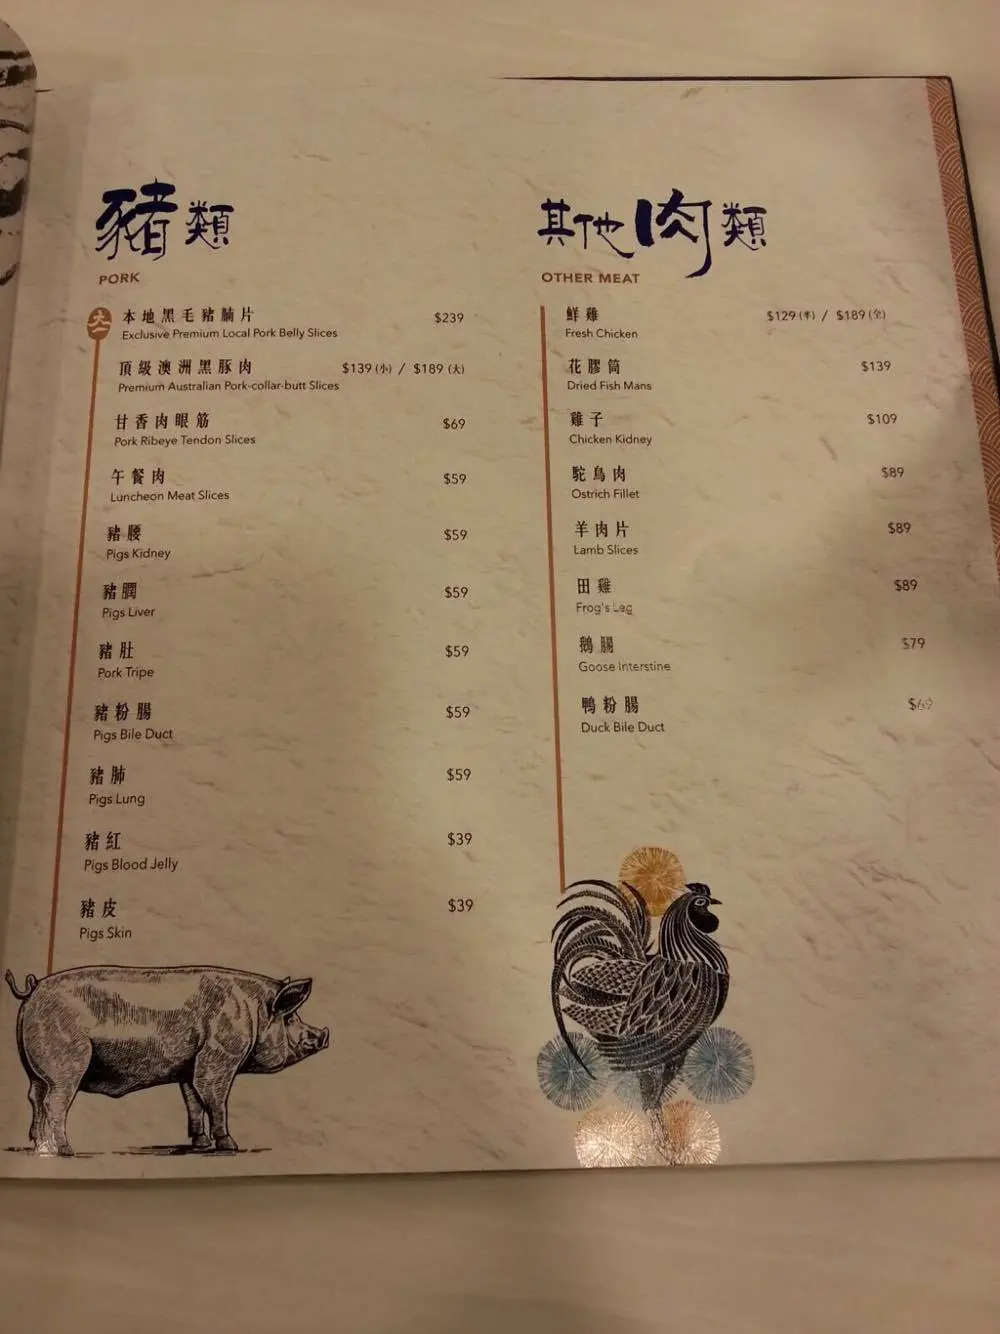 豬類
PORK
大一
本地黑毛豬腩片 $239
Exclusive Premium Local Pork Belly Slices
頂級澳洲黑豚肉 $139 (小) / $189 (大)
Premium Australian Pork-collar-butt Slices
甘香肉眼筋 $69
Pork Ribeye Tendon Slices
午餐肉 $59
Luncheon Meat Slices
豬腰 $59
Pigs Kidney
豬膶 $59
Pigs Liver
豬肚 $59
Pork Tripe
豬粉腸 $59
Pigs Bile Duct
豬肺 $59
Pigs Lung
豬紅 $39
Pigs Blood Jelly
豬皮 $39
Pigs Skin
其他肉類
OTHER MEAT
鮮雞 $129 (半) / $189 (全)
Fresh Chicken
花膠筒 $139
Dried Fish Mans
雞子 $109
Chicken Kidney
鴕鳥肉 $89
Ostrich Fillet
羊肉片 $89
Lamb Slices
田雞 $89
Frog's Leg
鵝腸 $79
Goose Interstine
鴨粉腸 $69
Duck Bile Duct